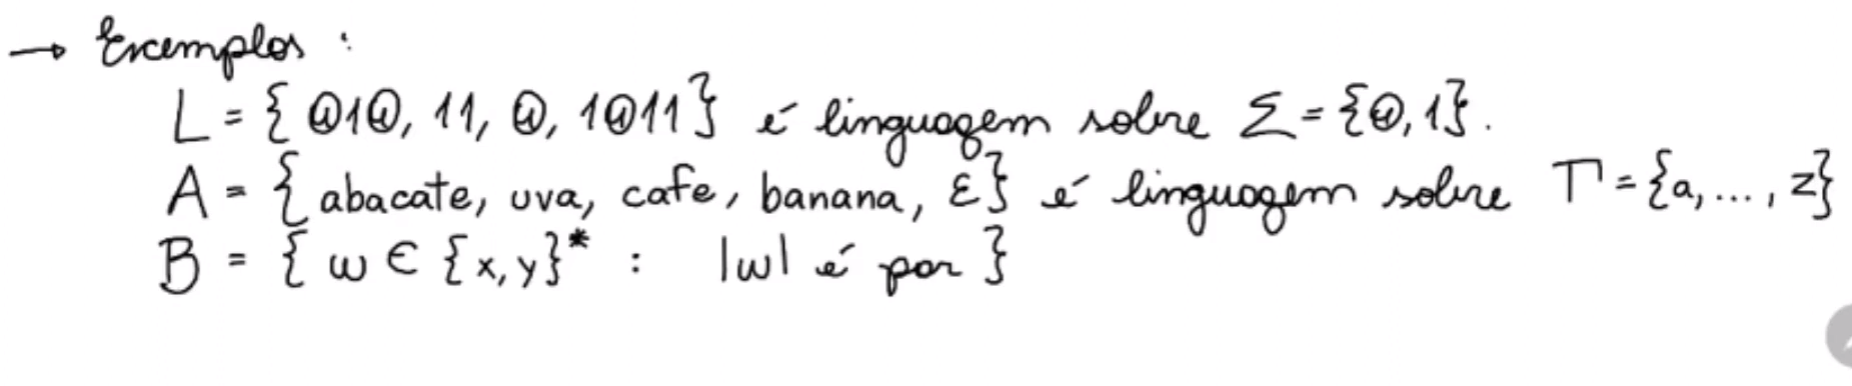 → Exemplos :
L = { 010, 11, 0, 1011} é linguagem sobre Σ = {0, 1}.
A = { abacate, uva, cafe, banana, ε} é linguagem sobre Γ = {a, ..., z}
B = { w ∈ {x, y}* : |w| é par }